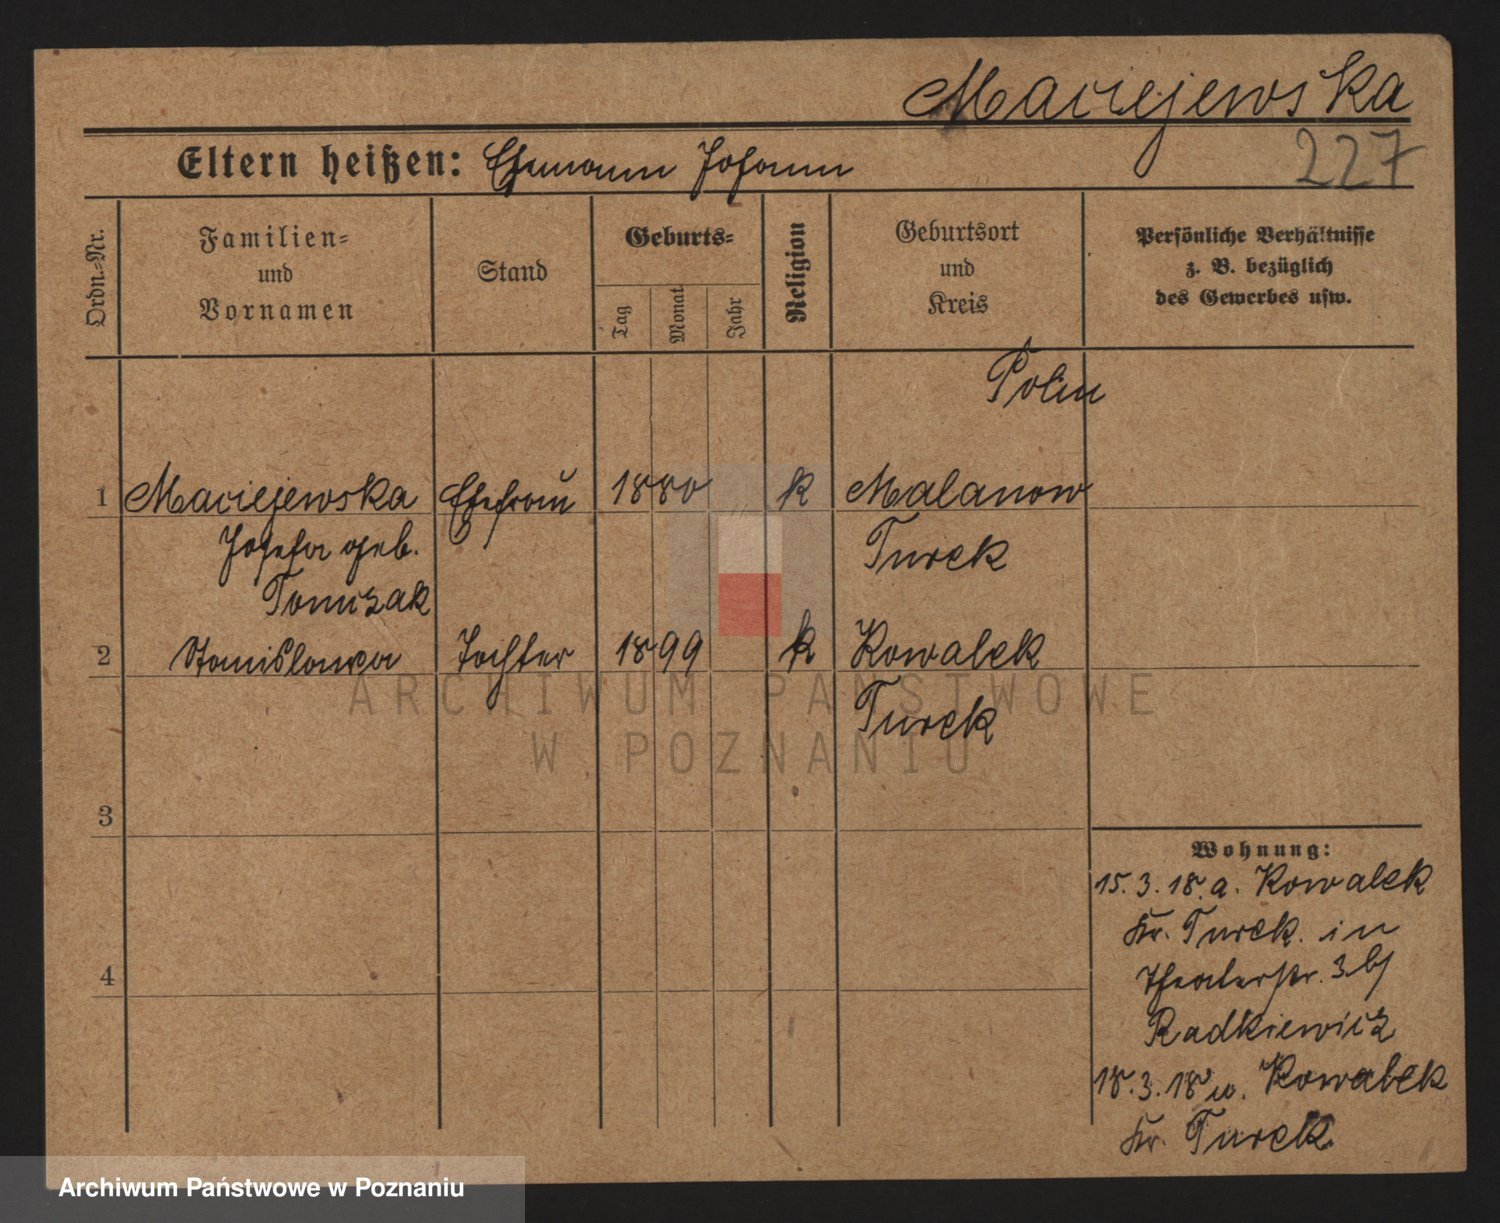 Maciejewska
Eltern heißen: Ehemann Johann
227
Ordn.=Nr.
Familien=
und
Vornamen
Stand
Geburts=
Tag
Monat
Jahr
Religion
Geburtsort
und
Kreis
Persönliche Verhältnisse
z. B. bezüglich
des Gewerbes usw.
Polen
1 Maciejewska Ehefrau 1880 k Malanow
Josefa geb. Turek
Tomczak
2 Stanislawa Tochter 1899 k Kowalek
Turek
3
4
Wohnung:
15.3.18. a. Kowalek
Kr. Turek. in
Theaterstr. 3 b/
Radkiewicz
18.3.18 n. Kowalek
Kr. Turek
ARCHIWUM PAŃSTWOWE
W POZNANIU
Archiwum Państwowe w Poznaniu